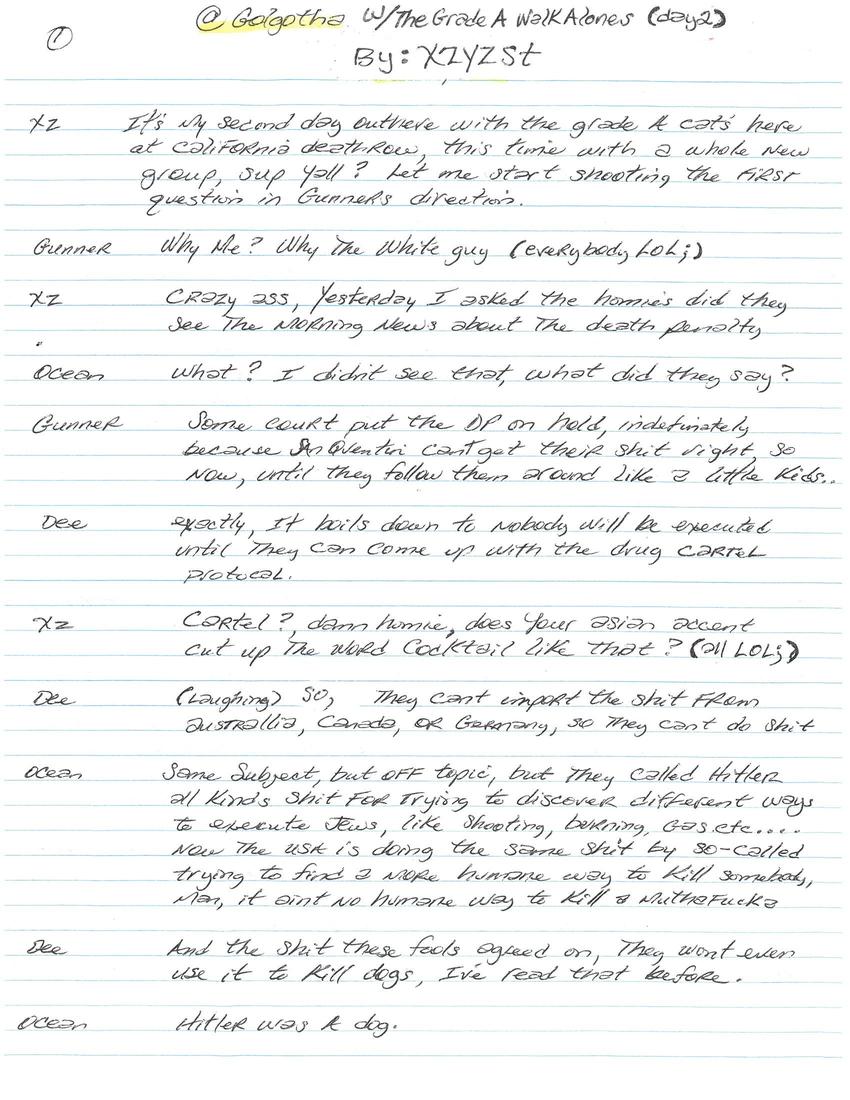 ①
@ Golgotha W/The Grade A Walk Alones (day2)
By: XZYZST
XZ It's My second day outhere with the grade A cat's here
at California deathrow, this time with a whole New
group, sup yall? Let me start shooting the First
question in Gunners direction.
Gunner Why Me? Why The White guy (everybody LOL;)
XZ Crazy ass, Yesterday I asked the homies did they
see The Morning News about The death penalty
Ocean What? I didn't see that, what did they say?
Gunner Some court put the DP on hold, indefinately
because San Quentin cant get their shit right, so
Now, until they follow them around like a little Kids..
Dee exactly, It boils down to Nobody will be executed
until They can come up with the drug Cartel
protocal.
XZ Cartel?, damn homie, does Your asian accent
cut up The Word Cocktail like that? (all LOL;)
Dee (Laughing) So, They cant import the shit From
australlia, Canada, or Germany, so They cant do shit
Ocean Same Subject, but off topic, but They called Hitler
all Kinds Shit For Trying to discover different ways
to execute Jews, like Shooting, burning, Gas etc....
Now The USA is doing the same shit by so-called
trying to find a More humane way to Kill somebody,
Man, it aint No humane way to Kill a MuthaFucka
Dee And the shit these fools agreed on, They wont even
use it to Kill dogs, I've read that before.
Ocean Hitler was A dog.